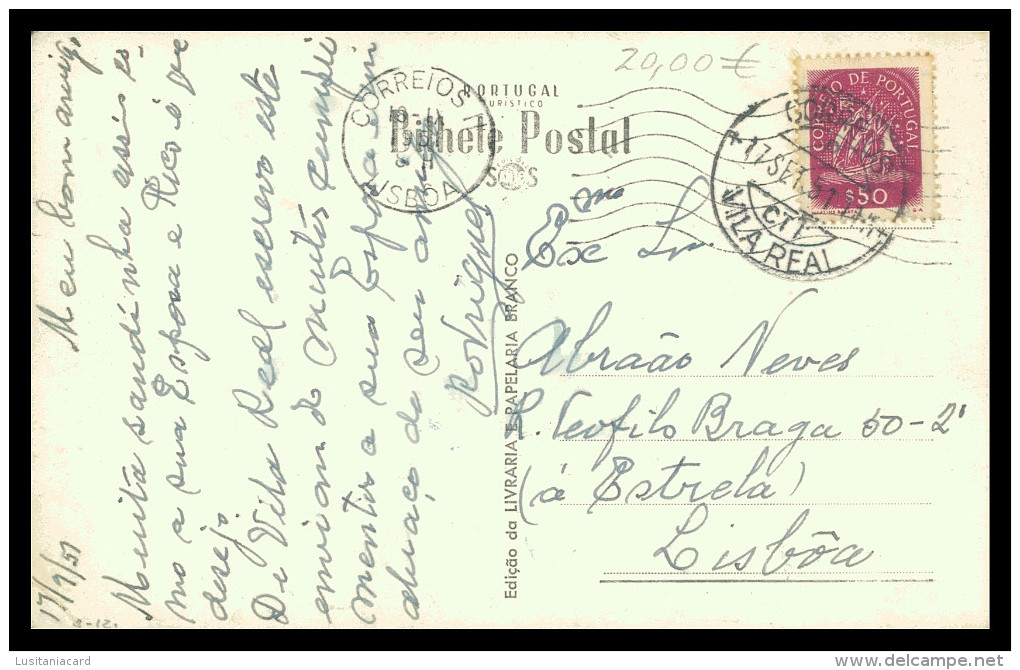 17/9/51
Meu bom amigo
Muita saudinha assis
mo a sua Esposa e Kico é o que
desejo.
De Vila Real escrevo este
enviando muitos cumpri
mentos a sua Esposa e um
abraço do seu amigo
Rodrigues
20,00€
PORTUGAL
TURÍSTICO
Bilhete Postal
SOS
CORREIOS
LISBOA
CORREIO DE PORTUGAL
$50
17 SET. 51
CTT
VILA REAL
Exmo Sr
Abraão Neves
R. Teofilo Braga 50-2º
(á Estrela)
Lisbôa
Edição da LIVRARIA E PAPELARIA BRANCO
Lusitaniacard
www.delcampe.net